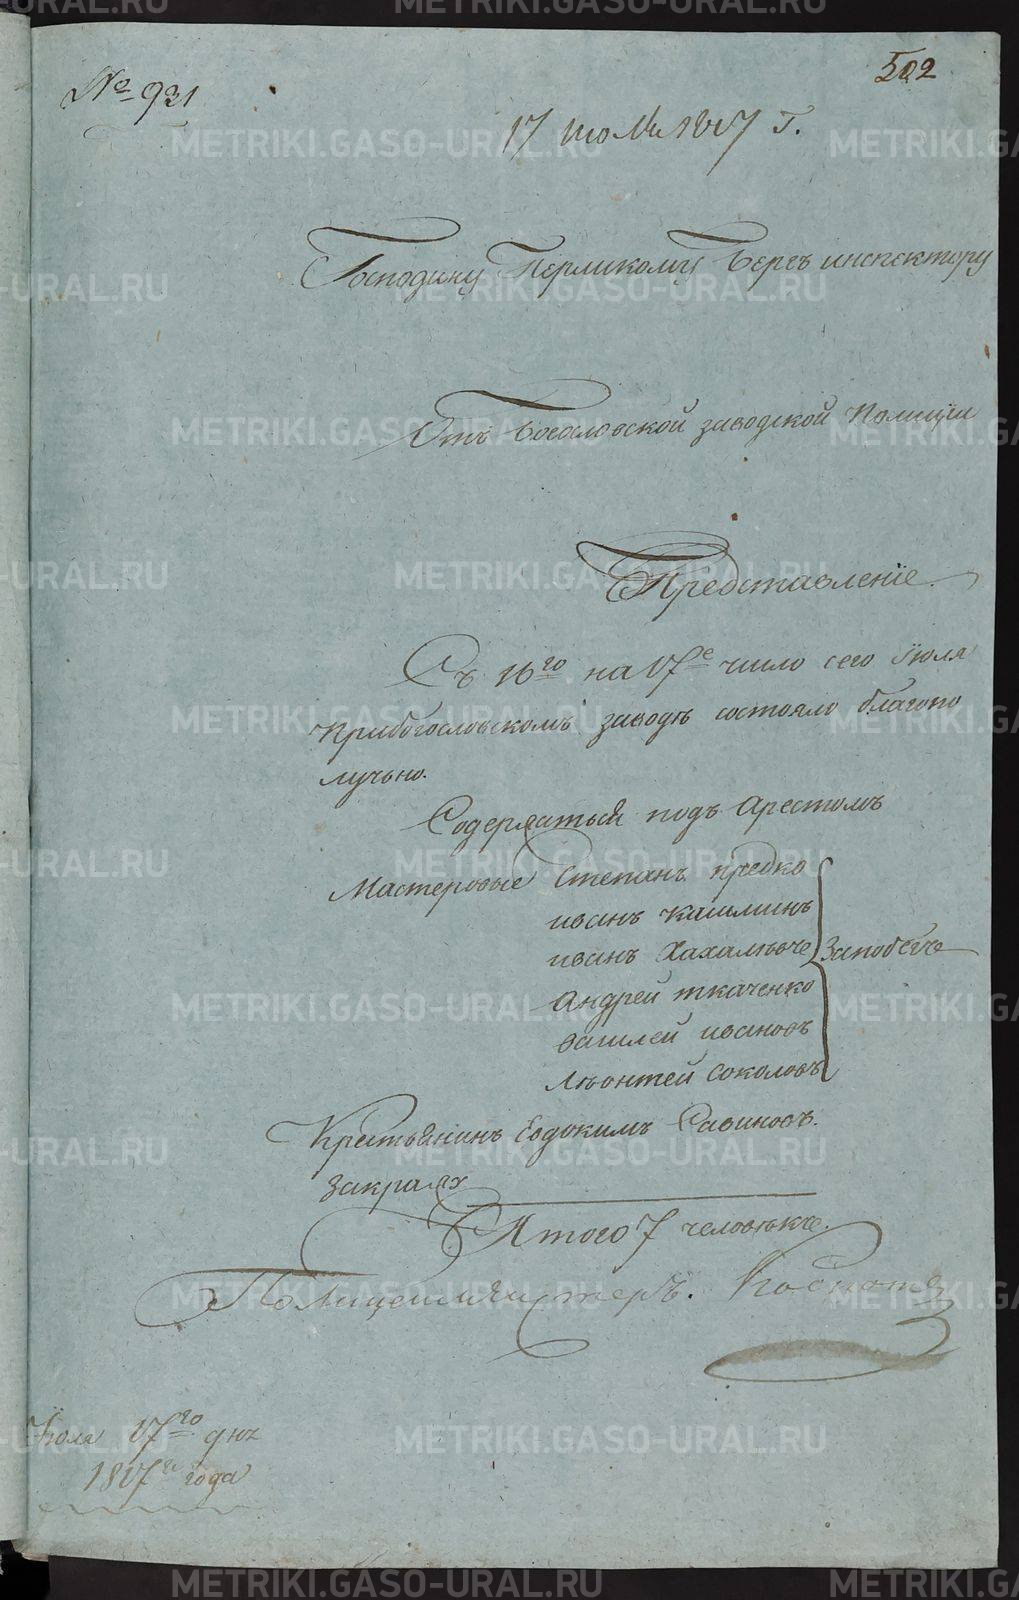 № 931
502
17 июля 1817 г.
Господину Пермикому Бергъ инспектору
Отъ Богословской заводской Полиции
Представленіе.
Съ 16го на 17е число сего Іюля
Прибогословскомъ заводѣ состояло благопо
лучьно.
Содержаться подъ арестомъ
Мастеровые Степанъ предко
иванъ
иванъ
Андрей ткаченко
Василей ивановъ
Леонтей соколовъ
Запобегъ
Крестьянинъ Евдокимъ Савиновъ.
Закражу
Итого 7 человѣкъ.
Полицеймейстеръ.
Іюля 17го дня
1817го года
METRIKI.GASO-URAL.RU